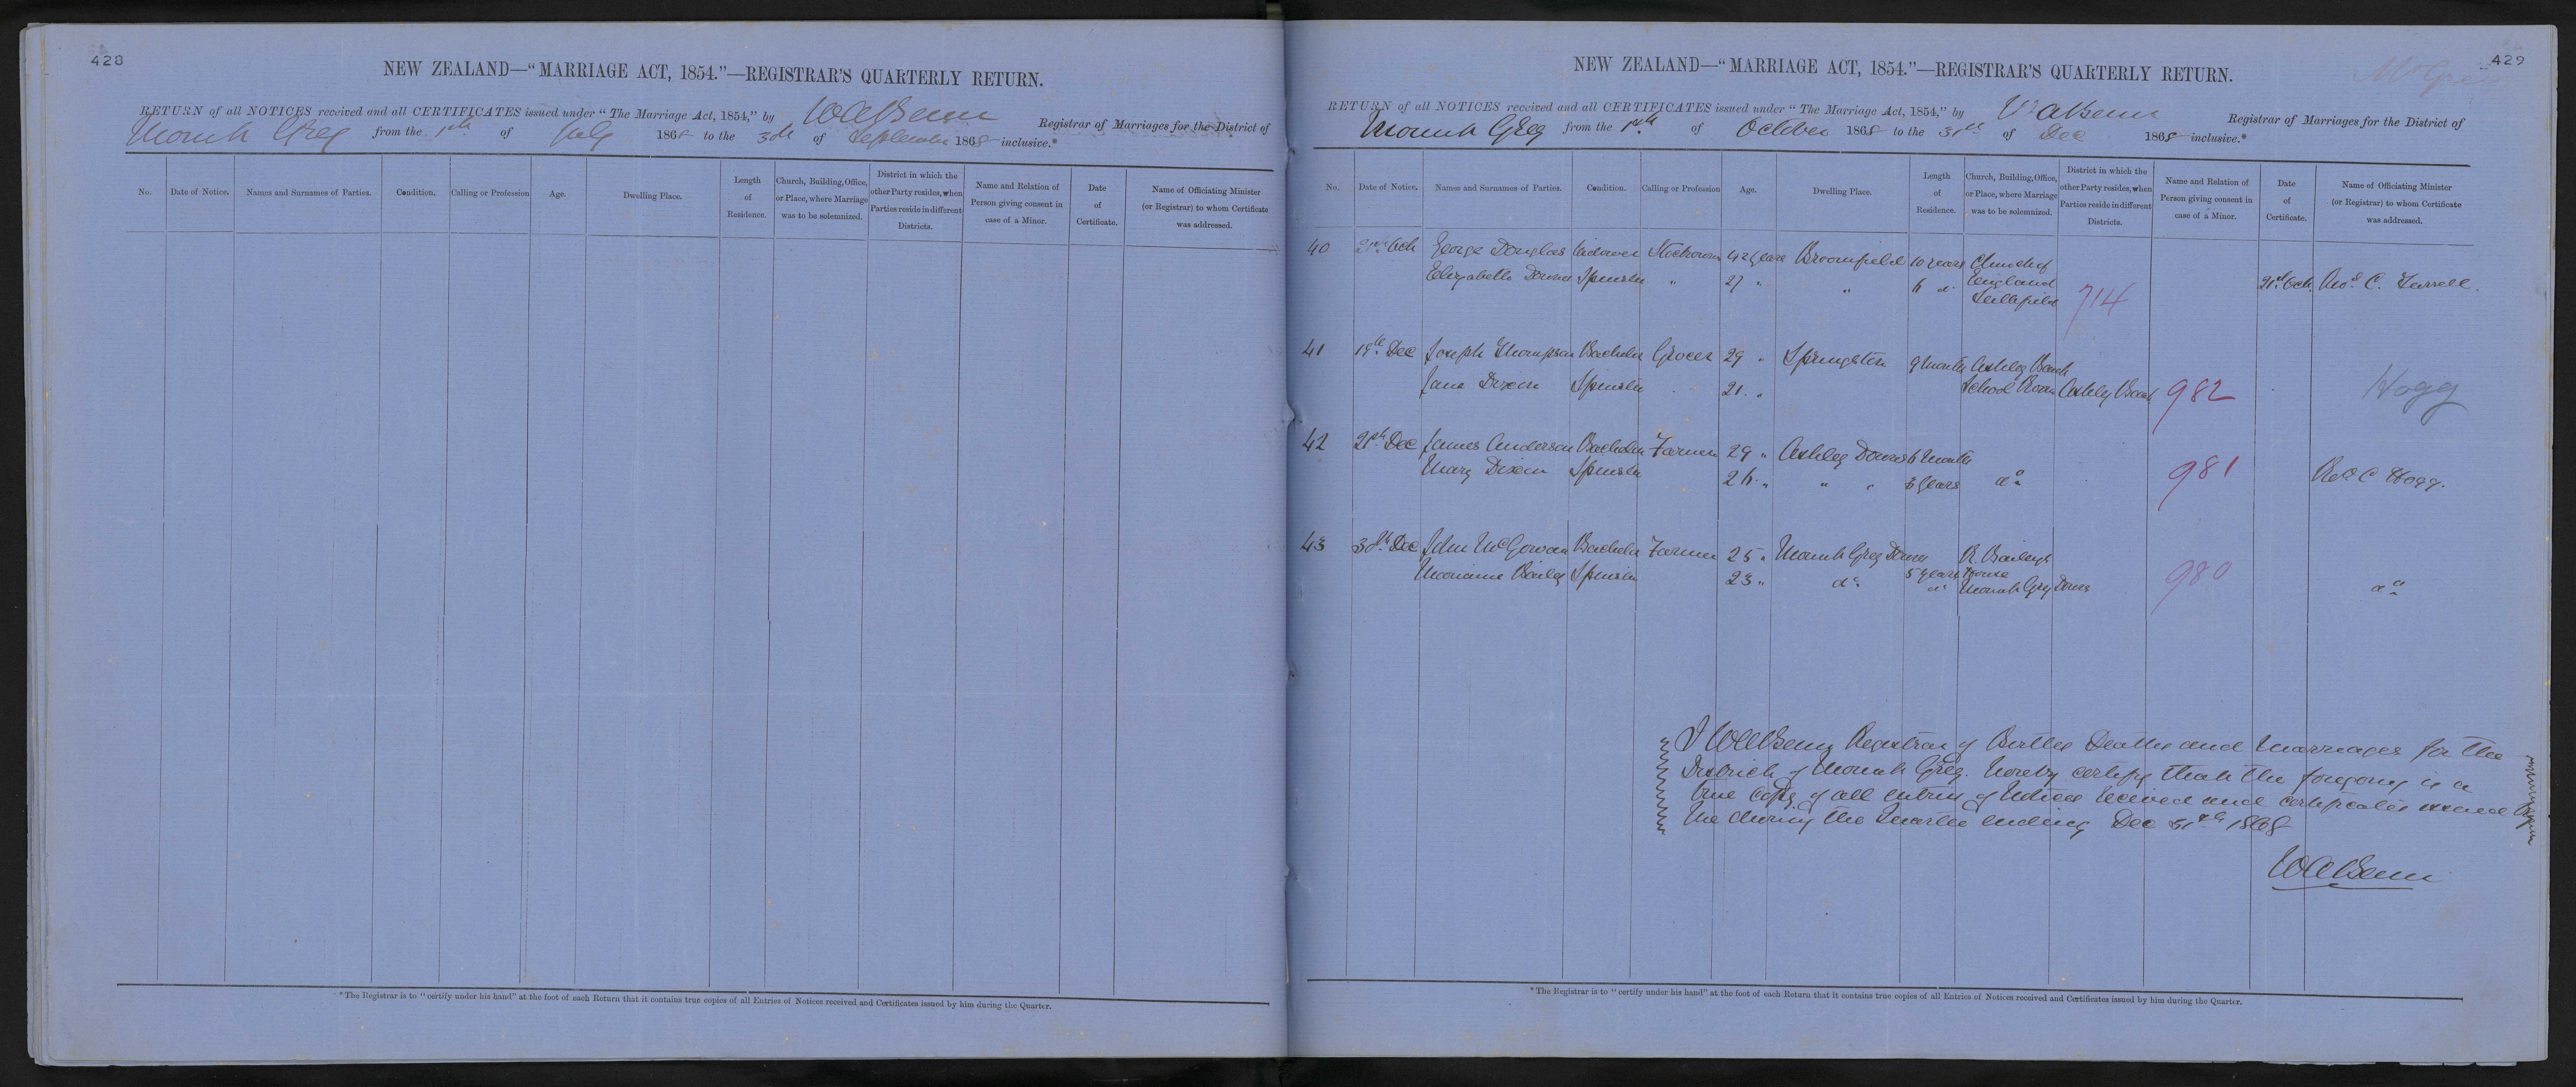 428
NEW ZEALAND—“MARRIAGE ACT, 1854.”—REGISTRAR'S QUARTERLY RETURN.
RETURN of all NOTICES received and all CERTIFICATES issued under “The Marriage Act, 1854,” by
Registrar of Marriages for the District of
Mount Grey from the 1st of July 1868 to the 30th of September 1868 inclusive.*
No. Date of Notice. Names and Surnames of Parties. Condition. Calling or Profession Age. Dwelling Place. Length of Residence. Church, Building, Office, or Place, where Marriage was to be solemnized. District in which the other Party resides, when Parties reside in different Districts. Name and Relation of Person giving consent in case of a Minor. Date of Certificate. Name of Officiating Minister (or Registrar) to whom Certificate was addressed.
* The Registrar is to “certify under his hand” at the foot of each Return that it contains true copies of all Entries of Notices received and Certificates issued by him during the Quarter.
429
NEW ZEALAND—“MARRIAGE ACT, 1854.”—REGISTRAR'S QUARTERLY RETURN.
RETURN of all NOTICES received and all CERTIFICATES issued under “The Marriage Act, 1854,” by
Registrar of Marriages for the District of
Mount Grey from the 1st of October 1868 to the 31st of Dec 1868 inclusive.*
No. Date of Notice. Names and Surnames of Parties. Condition. Calling or Profession Age. Dwelling Place. Length of Residence. Church, Building, Office, or Place, where Marriage was to be solemnized. District in which the other Party resides, when Parties reside in different Districts. Name and Relation of Person giving consent in case of a Minor. Date of Certificate. Name of Officiating Minister (or Registrar) to whom Certificate was addressed.
40 21st Oct George Douglas Widower 42 years Broomfield 10 years Church of
Elizabeth Spinster " 27 " " 6 do England 21st Oct. Revd C. Turrell.
714
41 19th Dec Joseph Thompson Bachelor Grocer 29 " Springston 9 months Ashley Bank
Jane Dixon Spinster 21 " School Room Ashley Bank 982 Hogg
42 21st Dec James Anderson Bachelor Farmer 29 " Ashley Downs 6 months
Mary Dixon Spinster 26 " " " years do 981 Revd C Hogg.
43 30th Dec John McGowan Bachelor Farmer 25 " Mount Grey Downs R. Baileys
Marianne Bailey Spinster 23 " do 5 years House 980 do
do Mount Grey Downs
Registrar of Births Deaths and Marriages for the
District of Mount Grey. hereby certify that the foregoing is a
true copy of all entries of Notices received and certificates issued by
me during the Quarter ending Dec 31st 1868
* The Registrar is to “certify under his hand” at the foot of each Return that it contains true copies of all Entries of Notices received and Certificates issued by him during the Quarter.